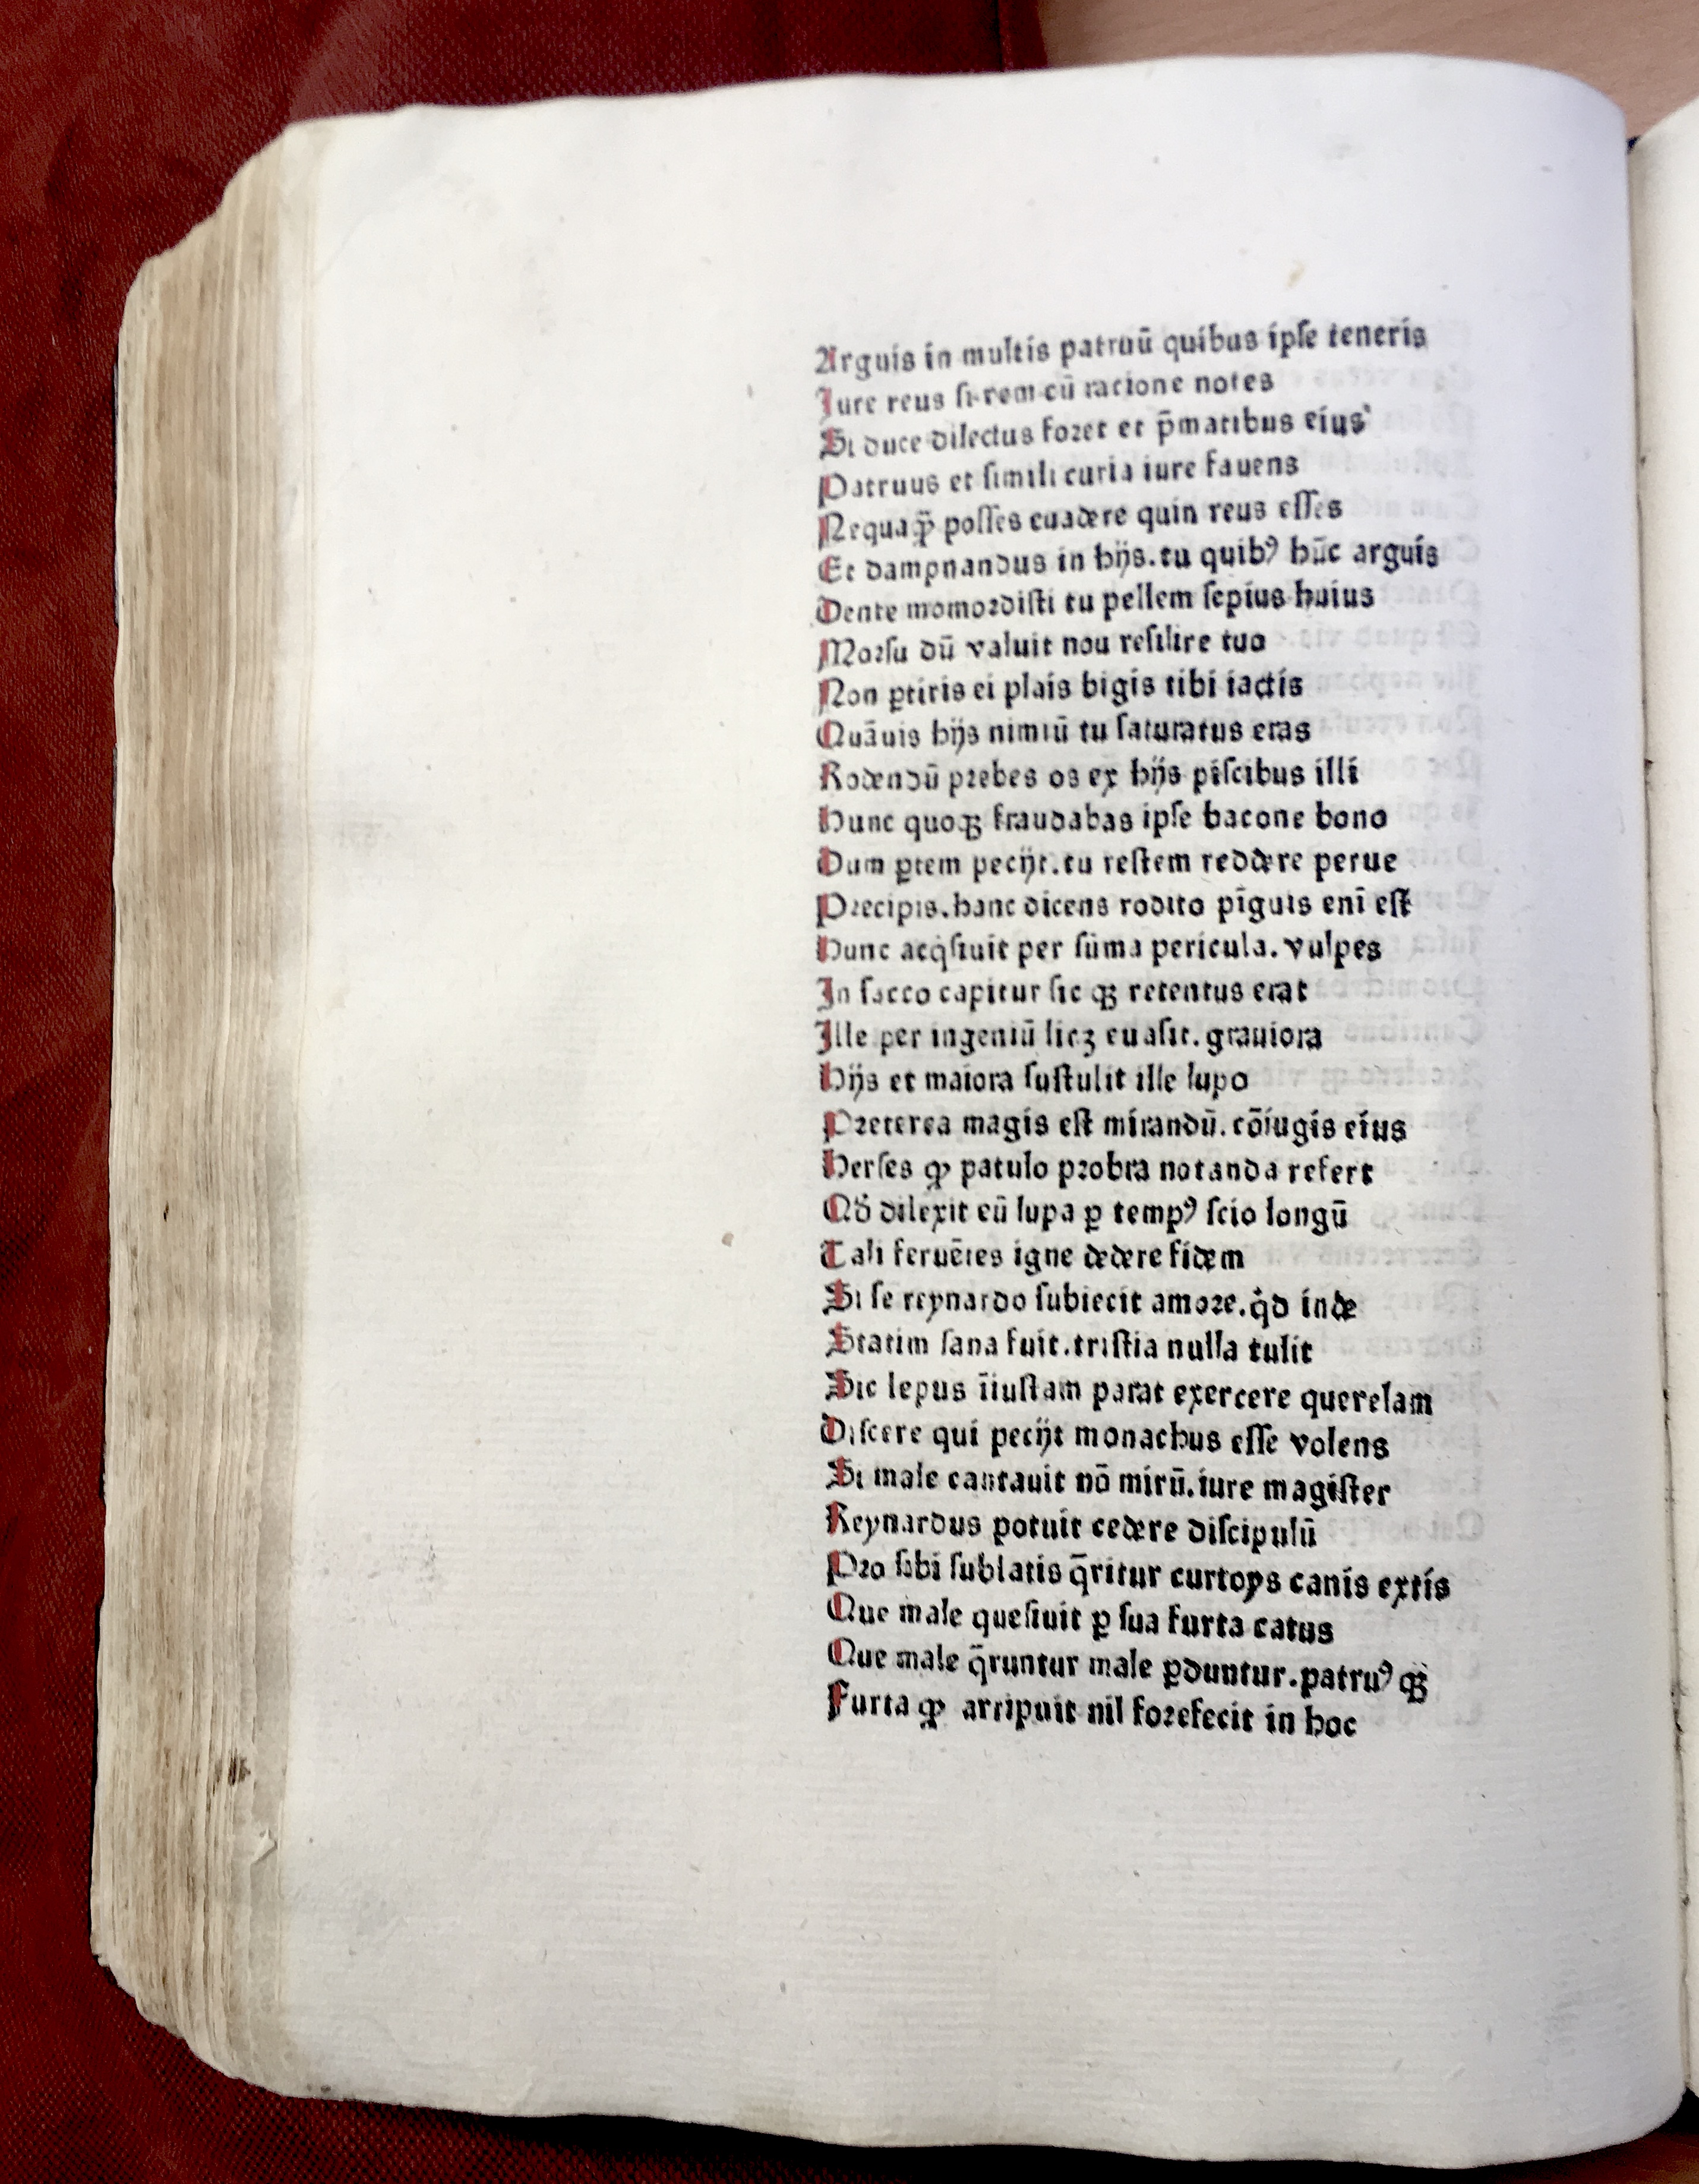 Arguis in multis patruū quibus ipſe teneris
Iure reus ſi rem cū racione notes
Si duce dilectus foꝛet et p̄matibus eius
Patruus et ſimili curia iure fauens
Nequaq̄ꝫ poſſes euadere quin reus eſſes
Et dampnandus in hijs.tu quibꝰ hūc arguis
Dente momoꝛdiſti tu pellem ſepius huius
Moꝛſu dū valuit nou reſilire tuo
Non ꝑtiris ei plais bigis tibi iactis
Quāuis hijs nimiū tu ſaturatus eras
Rodendū pꝛebes os ex hijs piſcibus illi
Hunc quoqꝫ fraudabas ipſe bacone bono
Dum ꝑtem pecijt.tu reſtem reddere perue
Pꝛecipis.hanc dicens rodito pīguis enī eſt
Hunc acq̇ſiuit per ſūma pericula. vulpes
In ſacco capitur ſic qꝫ retentus erat
Ille per ingeniū licꝫ euaſit. grauiora
Hijs et maiora ſuſtulit ille lupo
Pꝛeterea magis eſt mirandū. cōiugis eius
Herſes ꝙ patulo pꝛobra notanda refert
Qď dilexit eū lupa ꝑ tempꝰ ſcio longū
Tali feruētes igne dedere fidem
Si ſe reynardo ſubiecit amoꝛe.q̇d inde
Statim ſana fuit.triſtia nulla tulit
Sic lepus īiuſtam parat exercere querelam
Diſcere qui pecijt monachus eſſe volens
Si male cantauit nō mirū.iure magiſter
Reynardus potuit cedere diſcipulū
Pꝛo ſibi ſublatis q̄ritur curtoys canis extis
Que male queſiuit ꝑ ſua furta catus
Que male q̄runtur male ꝑduntur.patruꝰ qꝫ
Furta ꝙ arripuit nil foꝛefecit in hoc